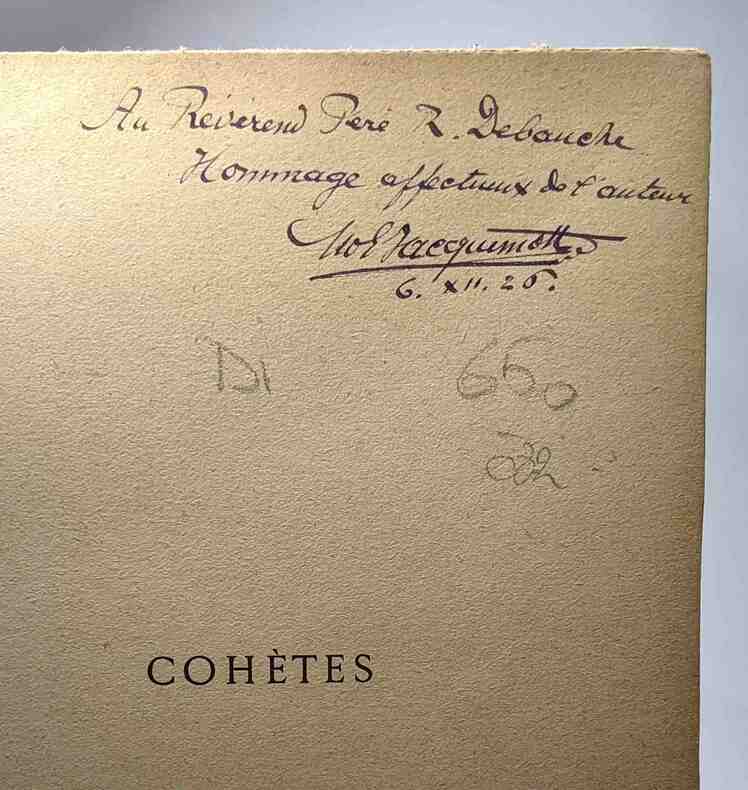 Au Révérend Père R. Debauche
Hommage affectueux de l'auteur
Jacquemotte
6. XII. 26.
Di 650
32
COHÈTES